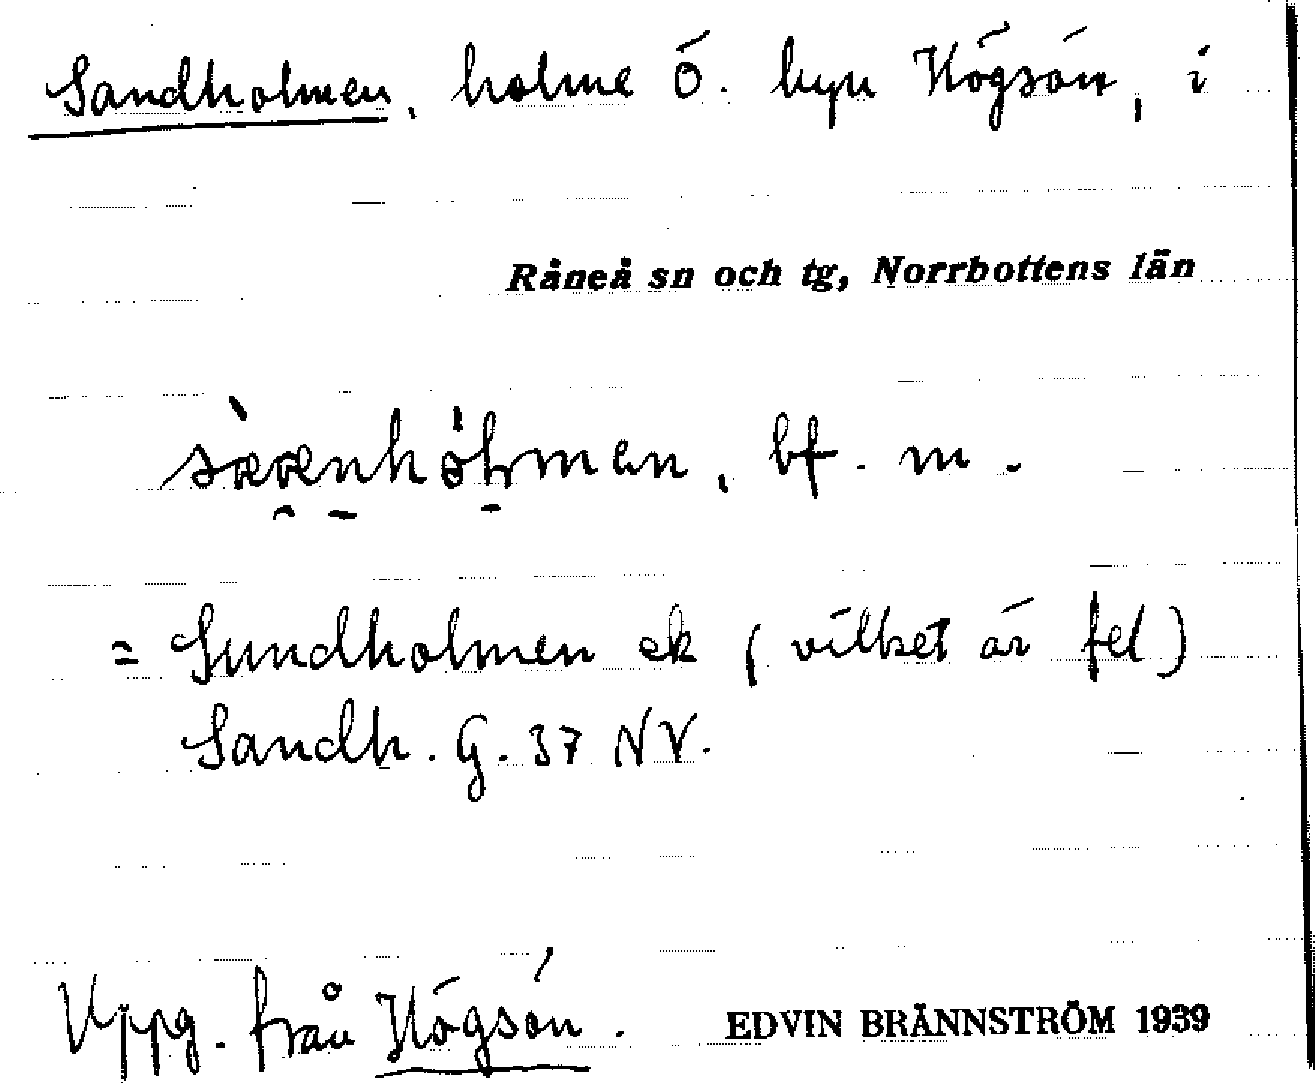 Sandholmen, holme Ö. byn Högsön, i
Råneå sn och tg, Norrbottens län
bf. m.
= Sundholmen ek (vilket är fel)
Sandh. G. 37 NV.
Uppg. från Högsön.
EDVIN BRÄNNSTRÖM 1939